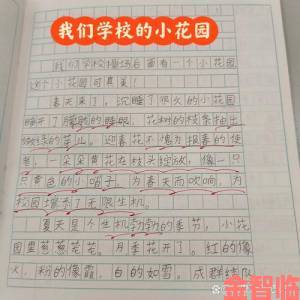 我们学校的小花园
我们学校操场后面有一个小花园
这个小花园可真美
春天来了，沉睡了很久的小花园
睁开了朦胧的睡眼，花树的枝条抽出
嫩绿的芽儿。迎春花不愧为报春的使
者，一朵朵黄花在枝头绽放，像一只
只黄色的小喇子，为春天而吹响，为
校园增添了无限生机。
夏天是个生机勃勃的季节，小花
园里葱葱茏茏。月季花开了。红的像
火，粉的像霞，白的如雪，成群结队
金智临